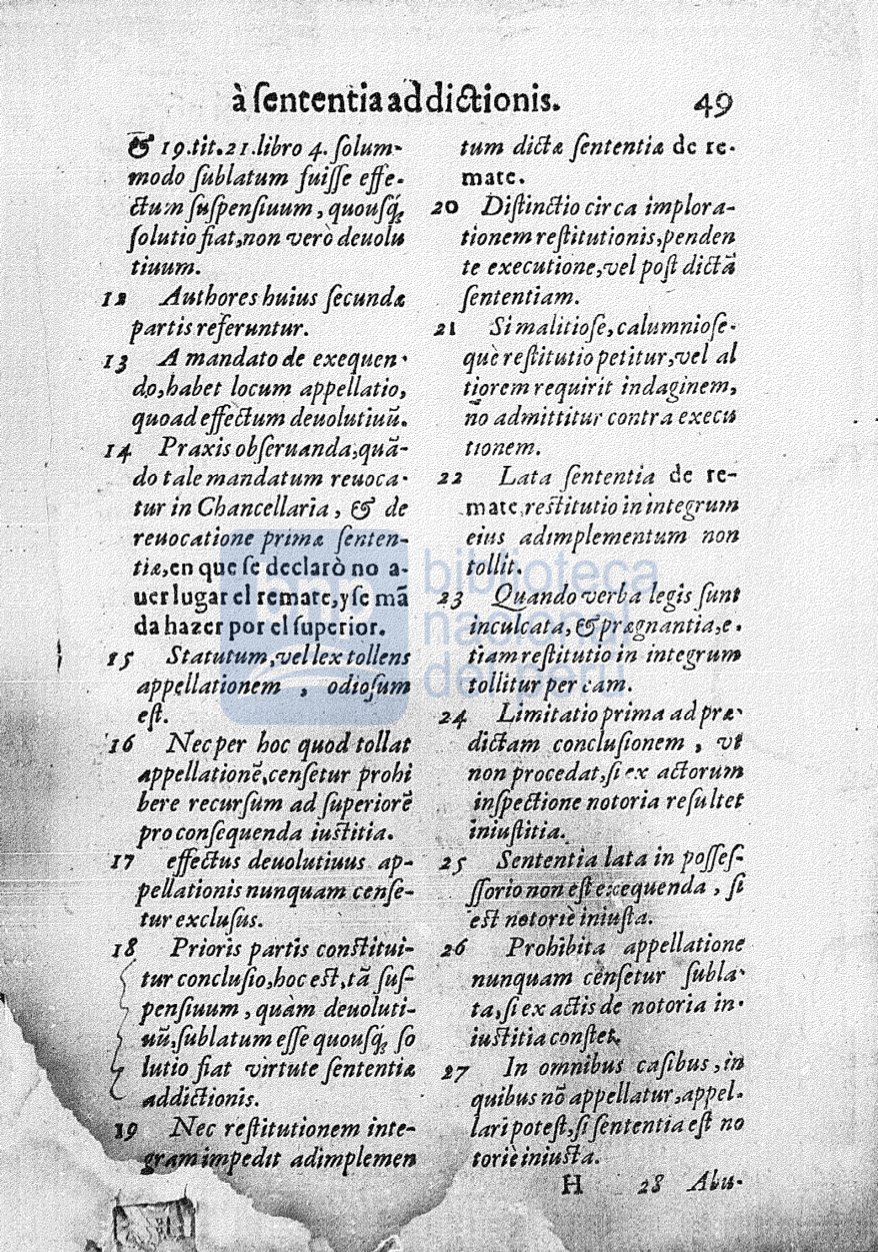 à ſententia addictionis. 49
& 19.tit.21.libro 4. ſolum-
modo ſublatum fuiſſe effe-
ctum ſuſpenſiuum, quouſq́;
ſolutio fiat,non verò deuolu
tiuum.
12 Authores huius ſecundæ
partis referuntur.
13 A mandato de exequen-
do,habet locum appellatio,
quoad effectum deuolutiuū.
14 Praxis obſeruanda,quā-
do tale mandatum reuoca-
tur in Chancellaria, & de
reuocatione primæ ſenten-
tiæ,en que ſe declarò no a-
uer lugar el remate,y ſe mā
da hazer por el ſuperior.
15 Statutum,vel lex tollens
appellationem , odioſum
eſt.
16 Nec per hoc quod tollat
appellationē,cenſetur prohi
bere recurſum ad ſuperiorē
pro conſequenda iuſtitia.
17 effectus deuolutiuus ap-
pellationis nunquam cenſe-
tur excluſus.
18 Prioris partis conſtitui-
tur concluſio,hoc eſt,tā ſuſ-
penſiuum , quàm deuoluti-
uū,ſublatum eſſe quouſq́; ſo
lutio fiat virtute ſententiæ
addictionis.
19 Nec reſtitutionem inte-
gram impedit adimplemen
tum dictæ ſententiæ de re-
mate.
20 Diſtinctio circa implora-
tionem reſtitutionis,penden
te executione,vel poſt dictā
ſententiam.
21 Si malitioſe,calumnioſe-
què reſtitutio petitur,vel al
tiorem requirit indaginem,
nō admittitur contra execu
tionem.
22 Lata ſententia de re-
mate,reſtitutio in integrum
eius adimplementum non
tollit.
23 Quando verba legis ſunt
inculcata, & prægnantia,e-
tiam reſtitutio in integrum
tollitur per eam.
24 Limitatio prima ad præ-
dictam concluſionem , vt
non procedat,ſi ex actorum
inſpectione notoria reſultet
iniuſtitia.
25 Sententia lata in poſſeſ-
ſſorio non eſt exequenda , ſi
eſt notoriè iniuſta.
26 Prohibita appellatione
nunquam cenſetur ſubla-
ta,ſi ex actis de notoria in-
iuſtitia conſtet.
27 In omnibus caſibus,in
quibus nō appellatur,appel-
lari poteſt,ſi ſententia eſt no
toriè iniuſta.
H 28 Abu-
biblioteca
nacional
del perú